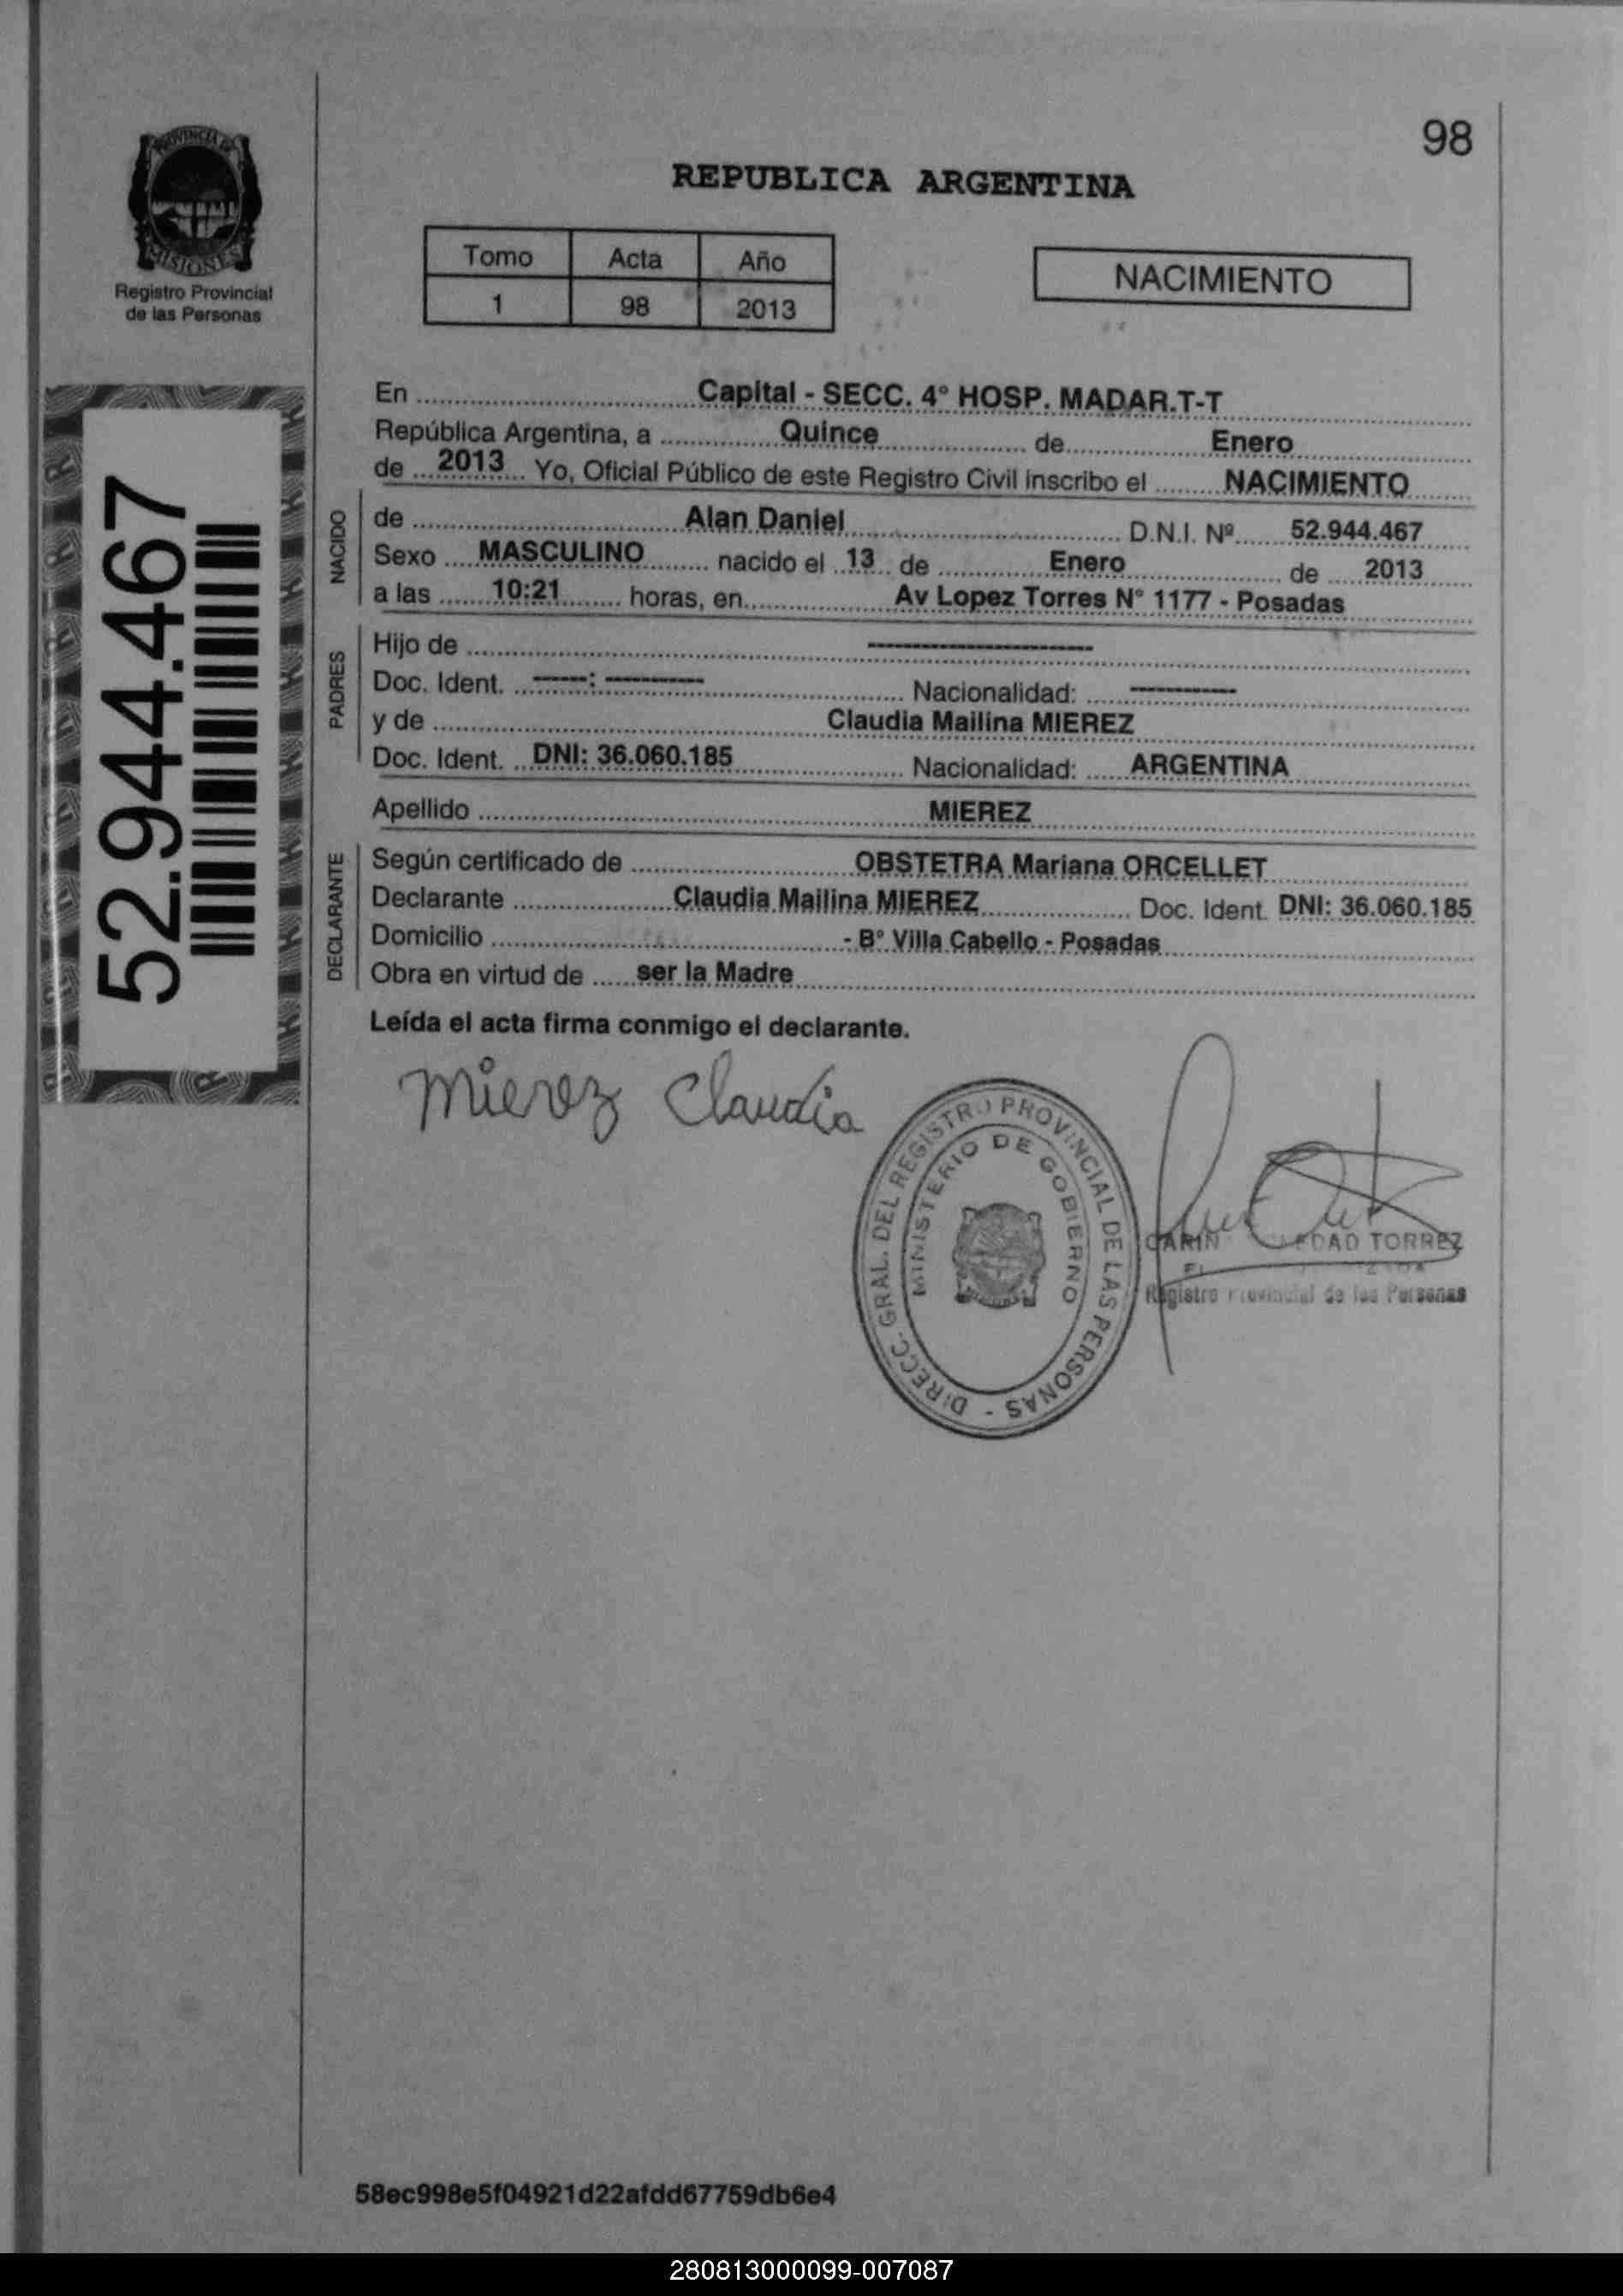 98
PROVINCIA DE
MISIONES
Registro Provincial
de las Personas
REPUBLICA ARGENTINA
Tomo Acta Año
1 98 2013
NACIMIENTO
52.944.467
En Capital - SECC. 4° HOSP. MADAR.T-T
República Argentina, a Quince de Enero
de 2013 Yo, Oficial Público de este Registro Civil inscribo el NACIMIENTO
NACIDO
de Alan Daniel D.N.I. Nº 52.944.467
Sexo MASCULINO nacido el 13 de Enero de 2013
a las 10:21 horas, en Av Lopez Torres N° 1177 - Posadas
PADRES
Hijo de ----------
Doc. Ident. -----:---------- Nacionalidad: ----------
y de Claudia Mailina MIEREZ
Doc. Ident. DNI: 36.060.185 Nacionalidad: ARGENTINA
Apellido MIEREZ
DECLARANTE
Según certificado de OBSTETRA Mariana ORCELLET
Declarante Claudia Mailina MIEREZ Doc. Ident. DNI: 36.060.185
Domicilio - B° Villa Cabello - Posadas
Obra en virtud de ser la Madre
Leída el acta firma conmigo el declarante.
Mierez Claudia
DIRECC. GRAL. DEL REGISTRO PROVINCIAL DE LAS PERSONAS -
MINISTERIO DE GOBIERNO
TORREZ
Registro Provincial de las Personas
58ec998e5f04921d22afdd67759db6e4
280813000099-007087